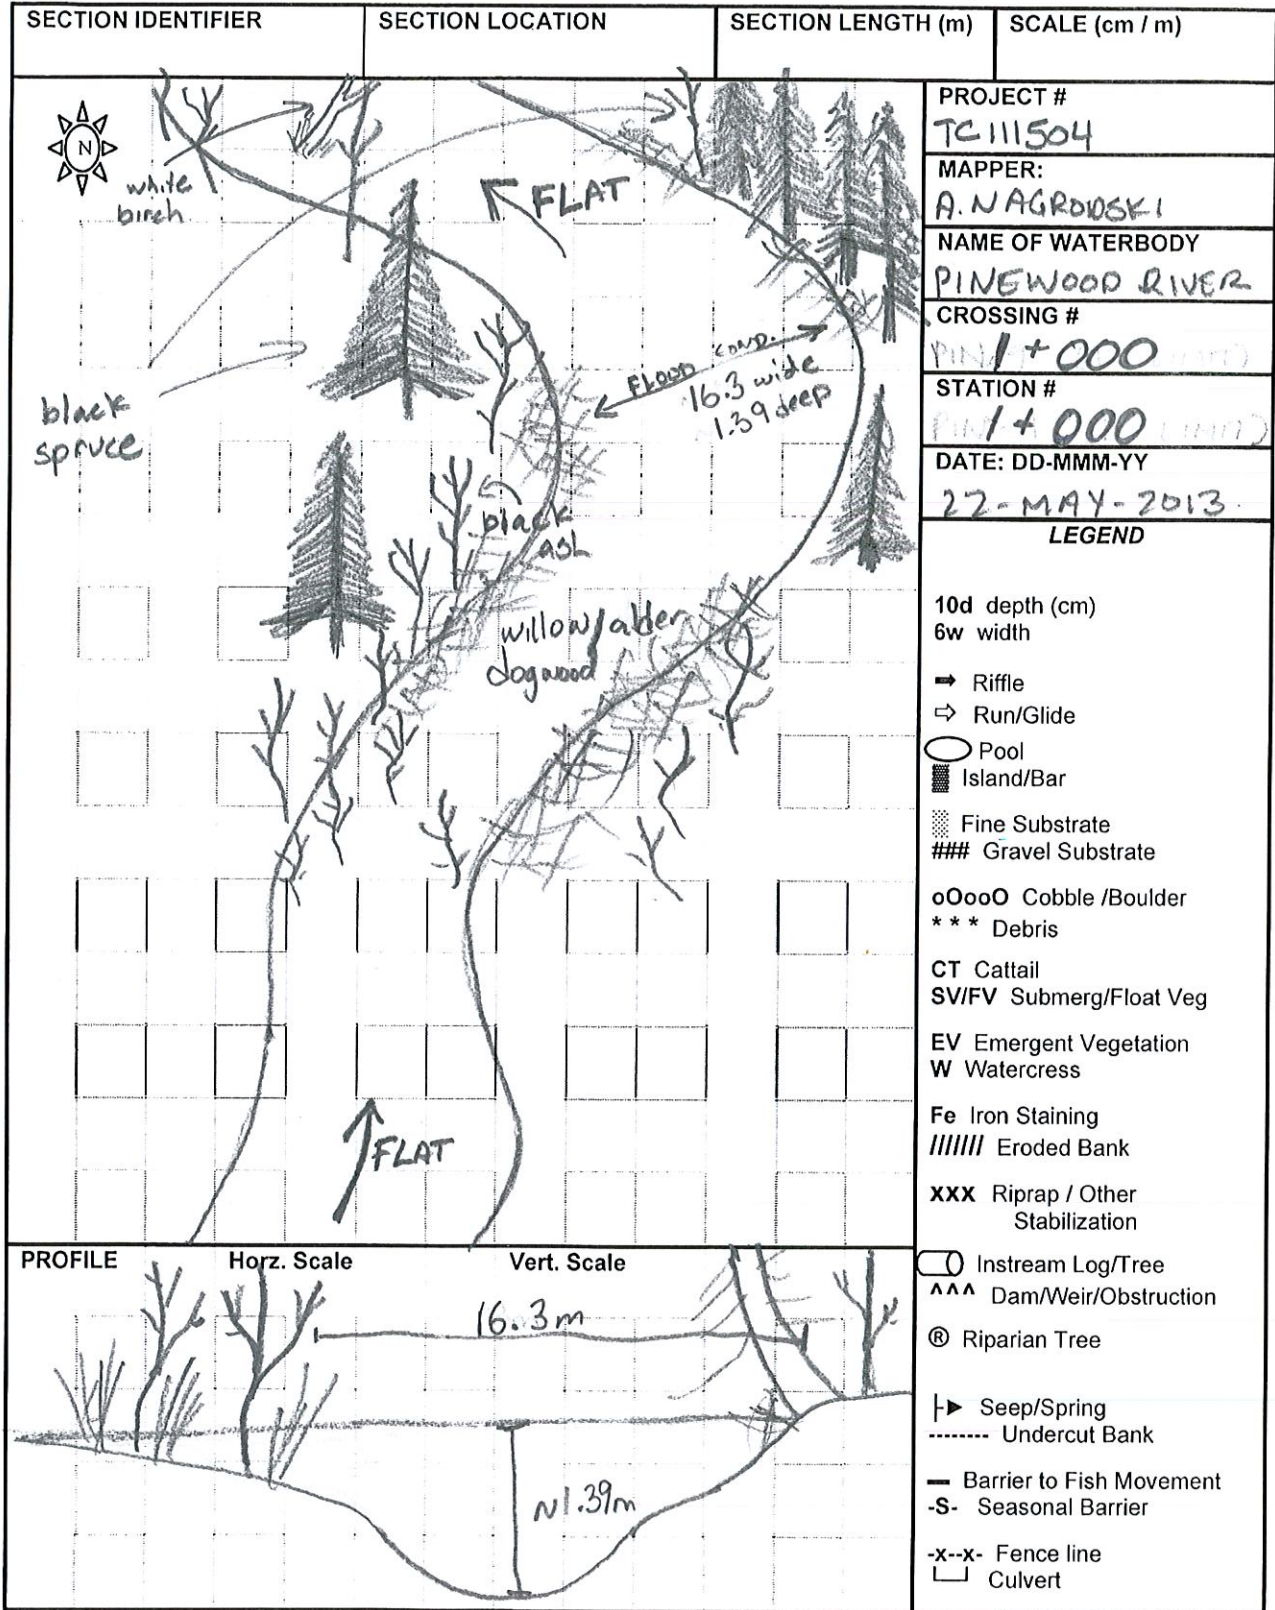 SECTION IDENTIFIER
SECTION LOCATION
SECTION LENGTH (m)
SCALE (cm / m)
N
white
birch
FLAT
black
spruce
FLOOD COND.
16.3 wide
1.39 deep
black
ash
willow/alder
dogwood
FLAT
PROJECT #
TC111504
MAPPER:
A. NAGRODSKI
NAME OF WATERBODY
PINEWOOD RIVER
CROSSING #
1+000
STATION #
1+000
DATE: DD-MMM-YY
22-MAY-2013
LEGEND
10d depth (cm)
6w width
Riffle
Run/Glide
Pool
Island/Bar
Fine Substrate
### Gravel Substrate
oOooO Cobble /Boulder
* * * Debris
CT Cattail
SV/FV Submerg/Float Veg
EV Emergent Vegetation
W Watercress
Fe Iron Staining
/////// Eroded Bank
XXX Riprap / Other
Stabilization
Instream Log/Tree
^^^ Dam/Weir/Obstruction
® Riparian Tree
Seep/Spring
-------- Undercut Bank
Barrier to Fish Movement
-S- Seasonal Barrier
-x--x- Fence line
Culvert
PROFILE
Horz. Scale
Vert. Scale
16.3m
~1.39m